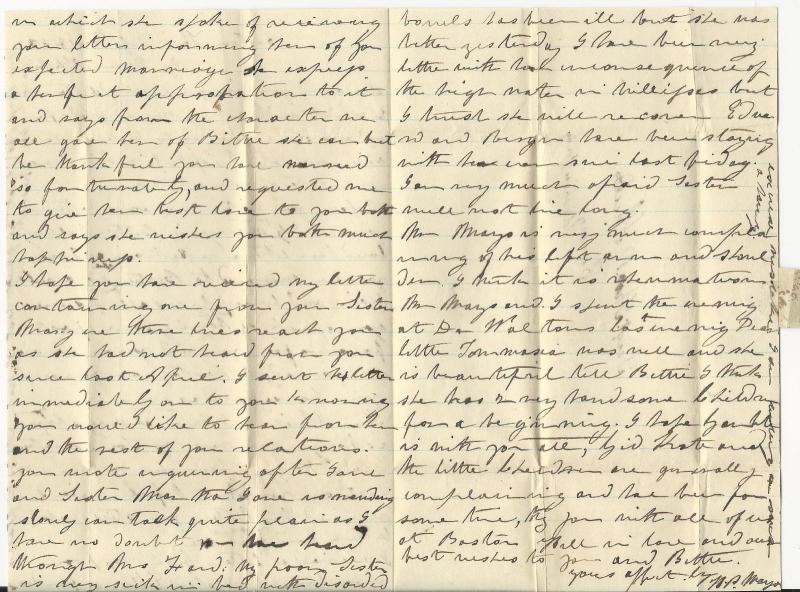 in which she spoke of receiving
your letters informing her of your
expected marriage she express
a perfect approbation to it
and says from the character we
all gave her of Bettie she can but
be thankful you have
so fortunately, and requested me
to give her best love to you both
and says she wishes you both much
happiness.
I hope you have received my letter
containing one from your Sister
Mary ere these lines reach you
as she had not heard from you
since last April. I sent the letter
immediately on to you knowing
you would like to hear from her
and the rest of your relations.
you wrote inquiring after Jane
and Sister Martha Jane is mending
slowly can talk quite plain as I
have no doubt you have heard
through Mrs Ford. My poor Sister
is very sick in bed with disordered
bowels has been ill but she was
better yesterday I have been very
little with her in consequence of
the high water in Willisses but
I trust she will recover Edwa
rd and have been staying
with her ever since last friday.
I am very much afraid Sister
will not live long.
Mr Mayo is very much complai
ning of his left arm and shoul
der. I think it is rheumatism
Mr Mayo and I spent the evening
at Dr Waltons last evening Dear
little Tommasia was well and she
is beautiful tell Bettie I think
she has 2 very handsome Children
for a beginning. I hope
is with you all, and
the little Children are generally
complaining and have been for
some time, they join with all of us
at Boston Hill in love and our
best wishes to you and Bettie.
yours affect. ly
Mayo